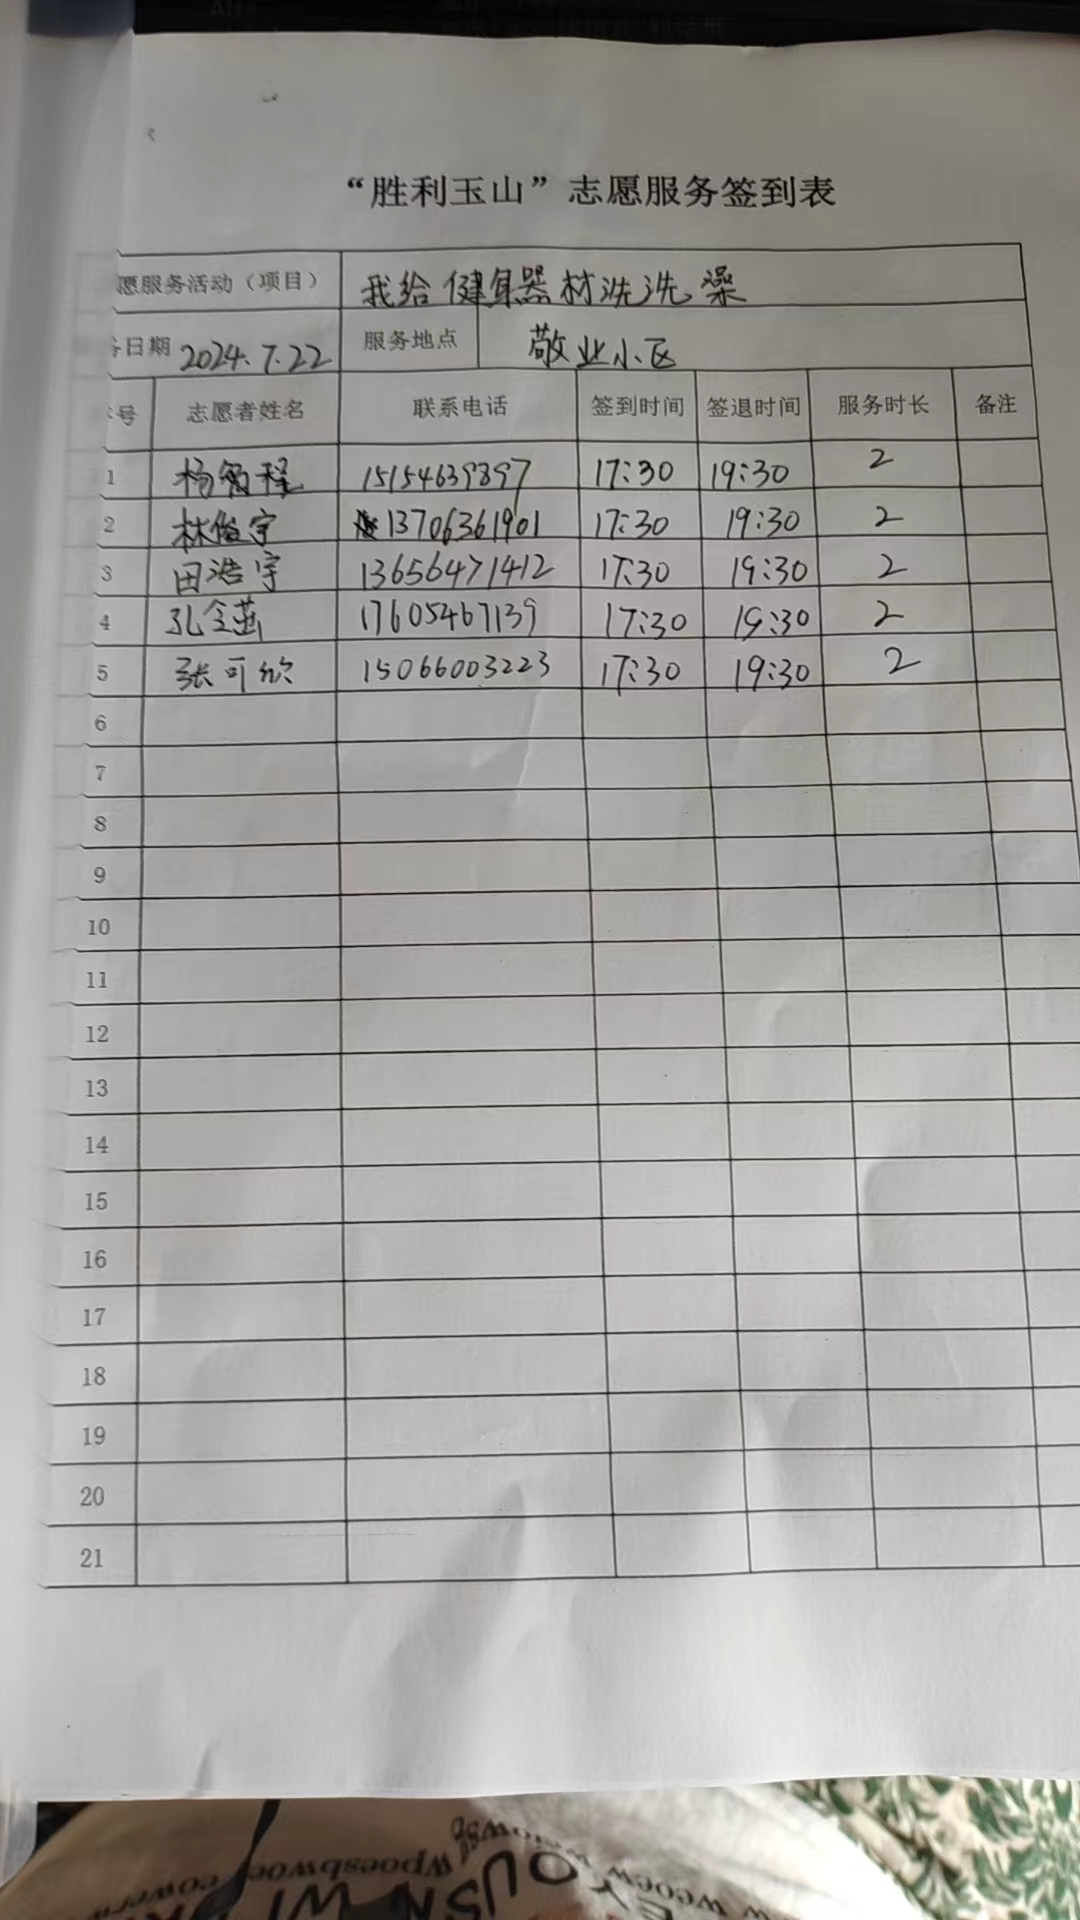 “胜利玉山”志愿服务签到表
愿服务活动（项目） 我给健身器材洗洗澡
日期 2024.7.22 服务地点 敬业小区
号 志愿者姓名 联系电话 签到时间 签退时间 服务时长 备注
1 杨智程 15154639897 17:30 19:30 2
2 林俊宇 13706361901 17:30 19:30 2
3 田浩宇 13656471412 17:30 19:30 2
4 孔令 17605467139 17:30 19:30 2
5 张可欣 15066003223 17:30 19:30 2
6
7
8
9
10
11
12
13
14
15
16
17
18
19
20
21